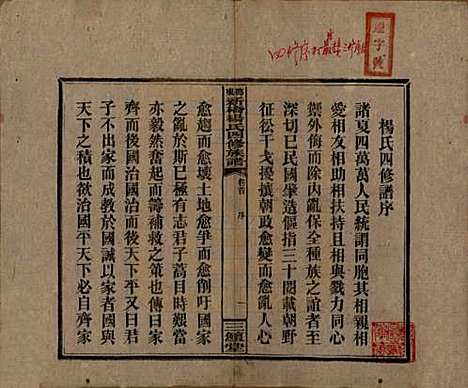 楊氏四修譜序
諸夏四萬萬人民統謂同胞其相親
愛相友相助相扶持且相與戮力同心
禦外侮而除內亂保全種族之誼者至
深切已民國肇造傴指三十閱載朝野
征伀干戈擾攘朝政愈變而愈亂人心
三鱣堂
卷首 序 一
楊氏四修族譜
愈趨而愈壞土地愈爭而愈削吁國家
之亂於斯已極有志君子蒿目時艱當
亦毅然奮起而籌補救之策也傳曰家
齊而後國治國治而後天下平又曰君
子不出家而成教於國誠以家者國與
天下之積也欲治國平天下必自齊家